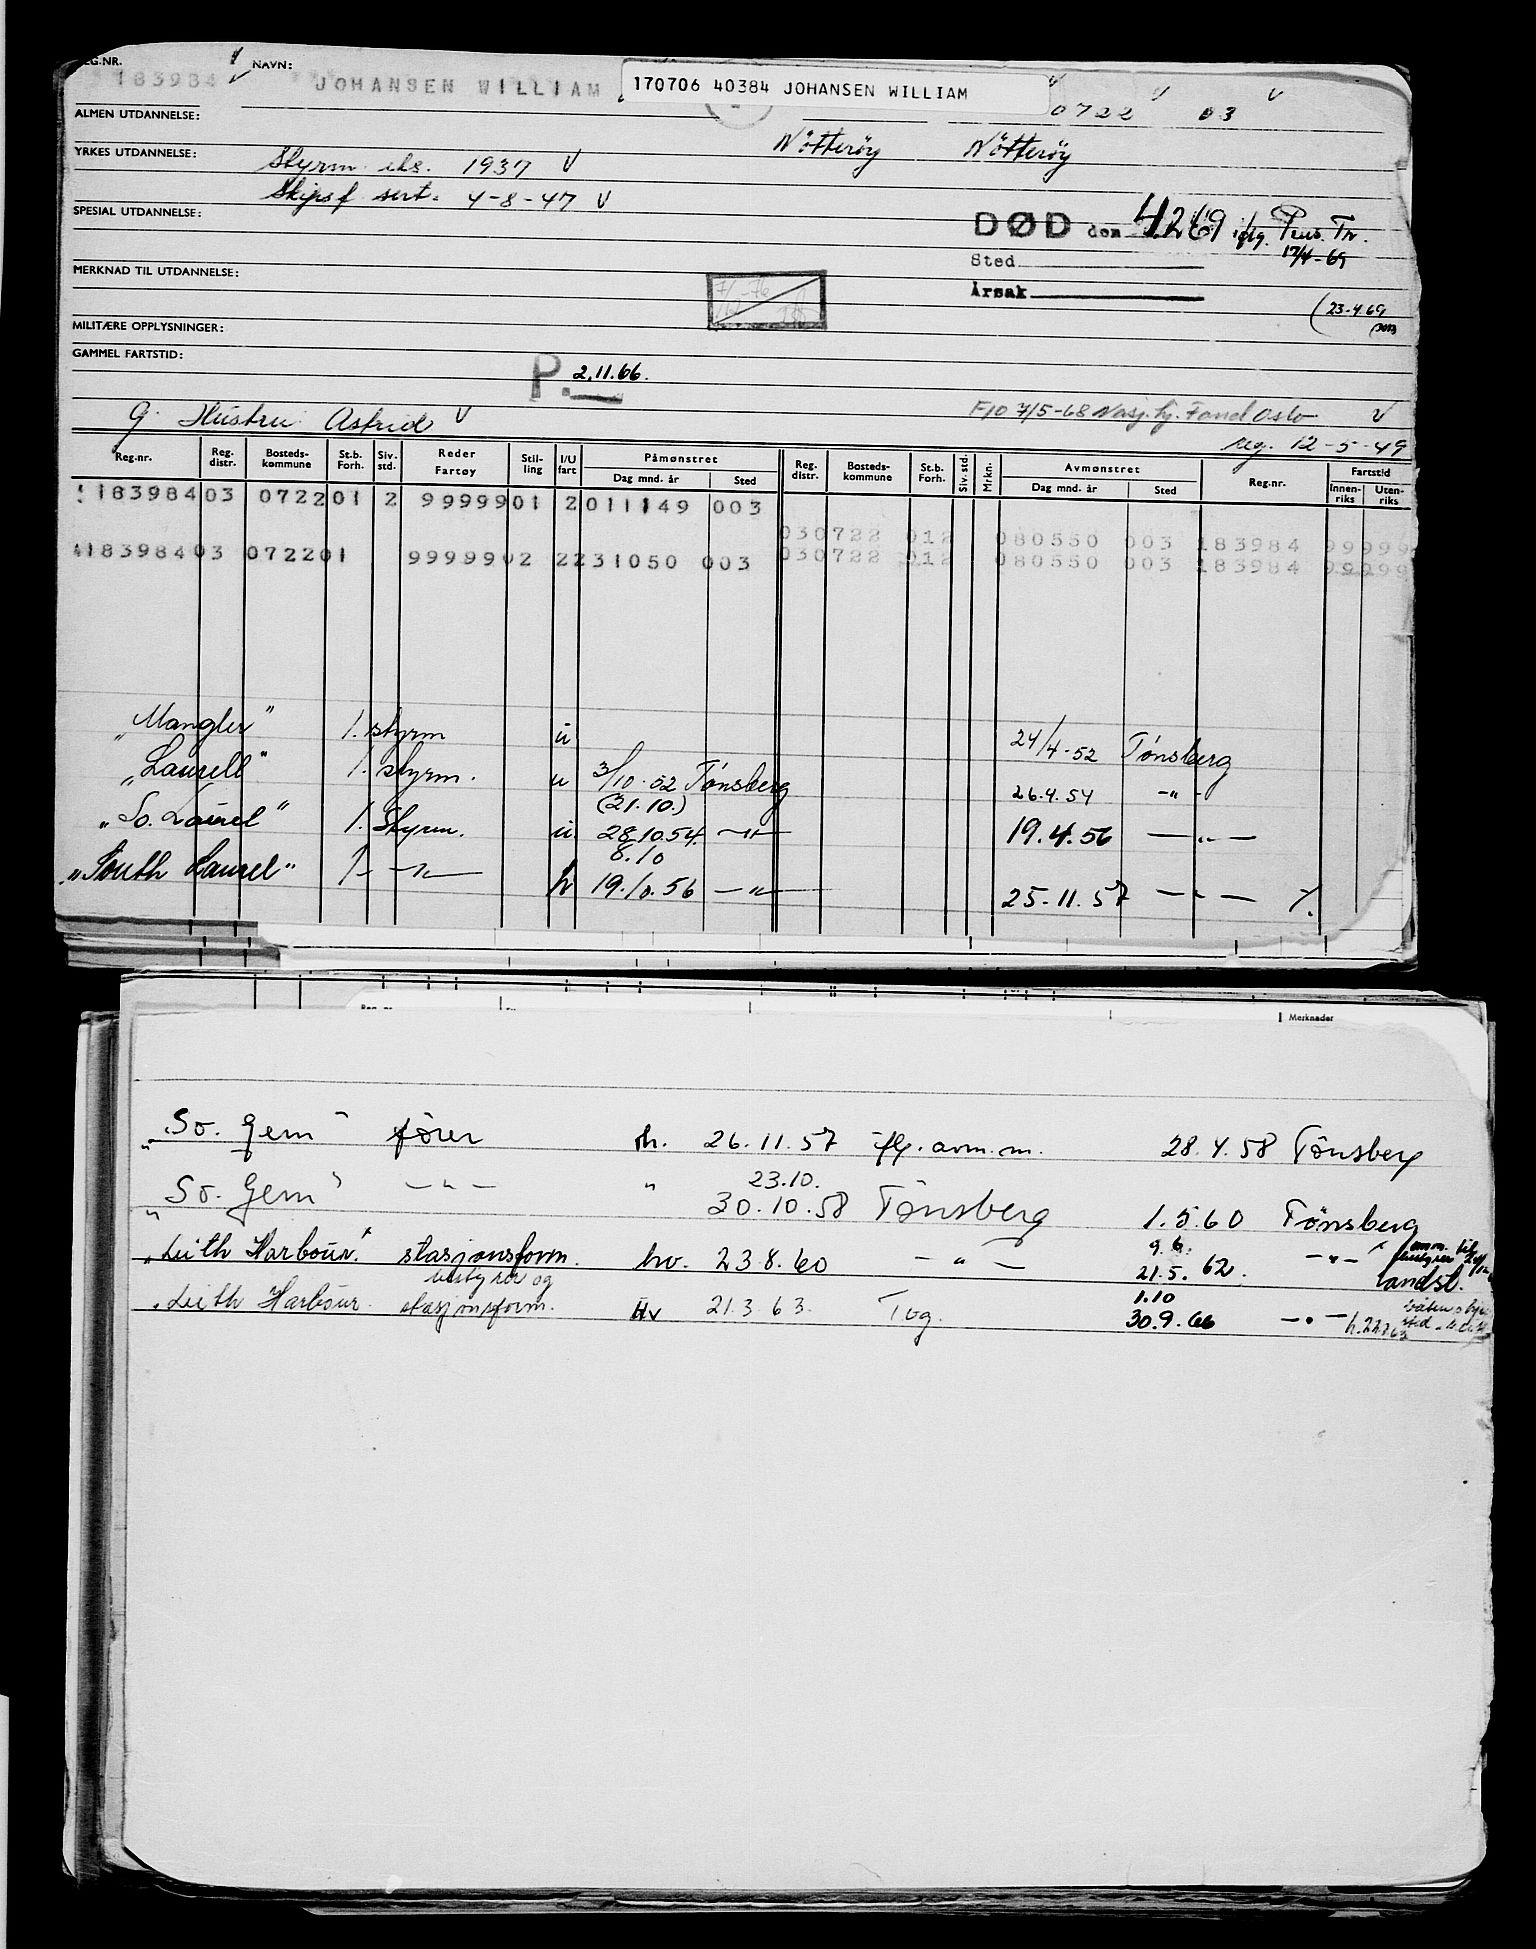 REG.NR. NAVN:
183984 JOHANSEN WILLIAM 170706 40384 JOHANSEN WILLIAM
0722 03
ALMEN UTDANNELSE:
Nötteröy Nötteröy
YRKES UTDANNELSE: Styrm. eks. 1937 V
Skipsf. sert. 4-8-47 V
SPESIAL UTDANNELSE:
DØD den 4.2.69 iflg. Pens. Tr.
17/4-69
Sted
MERKNAD TIL UTDANNELSE:
Årsak
(23-4.69
MILITÆRE OPPLYSNINGER:
GAMMEL FARTSTID:
P. 2.11.66.
g. Hustru Astrid V
F10 7/5-68 Nasj. hj. Fond Oslo V
reg. 12-5-49
Reg.nr. Reg. distr. Bosteds- kommune St.b. Forh. Siv. std. Reder Fartøy Stil- ling I/U fart Påmønstret Dag mnd. år Sted Reg. distr. Bosteds- kommune St.b. Forh. Siv. std. Mrkn. Avmønstret Dag mnd. år Sted Reg.nr. Fartstid Innen- riks Uten- riks
183984 03 0722 01 2 99999 01 2 011149 003
030722 012 080550 003 183984 99999
183984 03 0722 01 99999 02 2 231050 003
030722 012 080550 003 183984 99999
"Mangler" 1. styrm u 24/4-52 Tönsberg
"Laurell" 1. styrm. u 3/10-52 Tönsberg 26.4.54 -"-
(21.10.)
"So. Laurel" 1. Styrm. u 28.10.54. -"- 19.4.56 -"-
8.10
"South Laurel" 1- -"- h 19.10.56 -"- 25-11.57 -"- %.
Merknader
"So. Gem" fører h. 26.11.57 iflg. avm.m. 28.4.58 Tönsberg
23.10.
"So. Gem" -"- " 30.10.58 Tönsberg 1.5.60 Tönsberg
9.6.
"Leith Harbour" stasjonsform. hv. 23.8.60 -"- 21.5.62. -"-
bestyrer og landst.
1.10
"Leith Harbour. stasjonsform. Hv 21.3.63. Tbg. 30.9.66 -"-